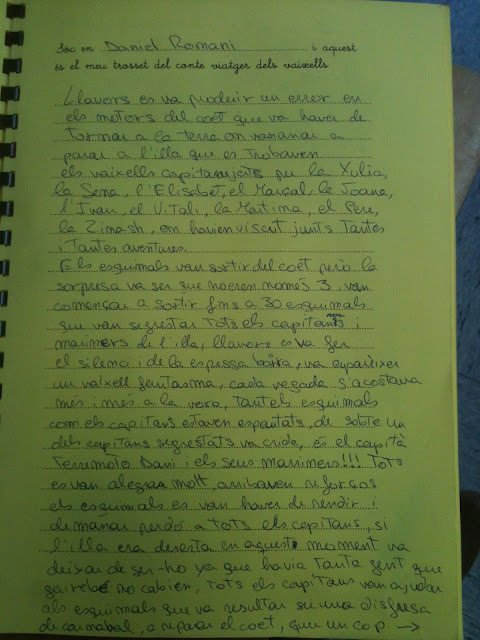 Sóc en Daniel Romaní i aquest
és el meu trosset del conte viatger dels vaixells
Llavors es va produir un error en
els motors del coet que va haver de
tornar a la terra on van anar a
parar a l'illa que es trobaven
els vaixells capitanejats per la Xulia,
la Sena, l'Elisabet, el Marçal, la Joana,
l'Ivan, el Vitali, la Martina, el Pere,
la Zinash, on havien viscut junts tantes
i tantes aventures.
Els esquimals van sortir del coet però la
sorpresa va ser que no eren només 3, van
començar a sortir fins a 30 esquimals
que van segrestar tots els capitans i
mariners de l'illa, llavors es va fer
el silenci i de la espessa boira, va aparèixer
un vaixell fantasma, cada vegada s'acostava
més i més a la vora, tant els esquimals
com els capitans estaven espantats, de sobte un
dels capitans segrestats va cridar, és el capità
Terremoto Dani i els seus mariners!!! Tots
es van alegrar molt, arribaven reforços
els esquimals es van haver de rendir i
demanar perdó a tots els capitans, si
l'illa era deserta en aquest moment va
deixar de ser-ho ja que havia tanta gent que
gairebé no cabien, tots els capitans van ajudar
als esquimals que va resultar ser una disfressa
de carnabal, a reparar el coet, que un cop →